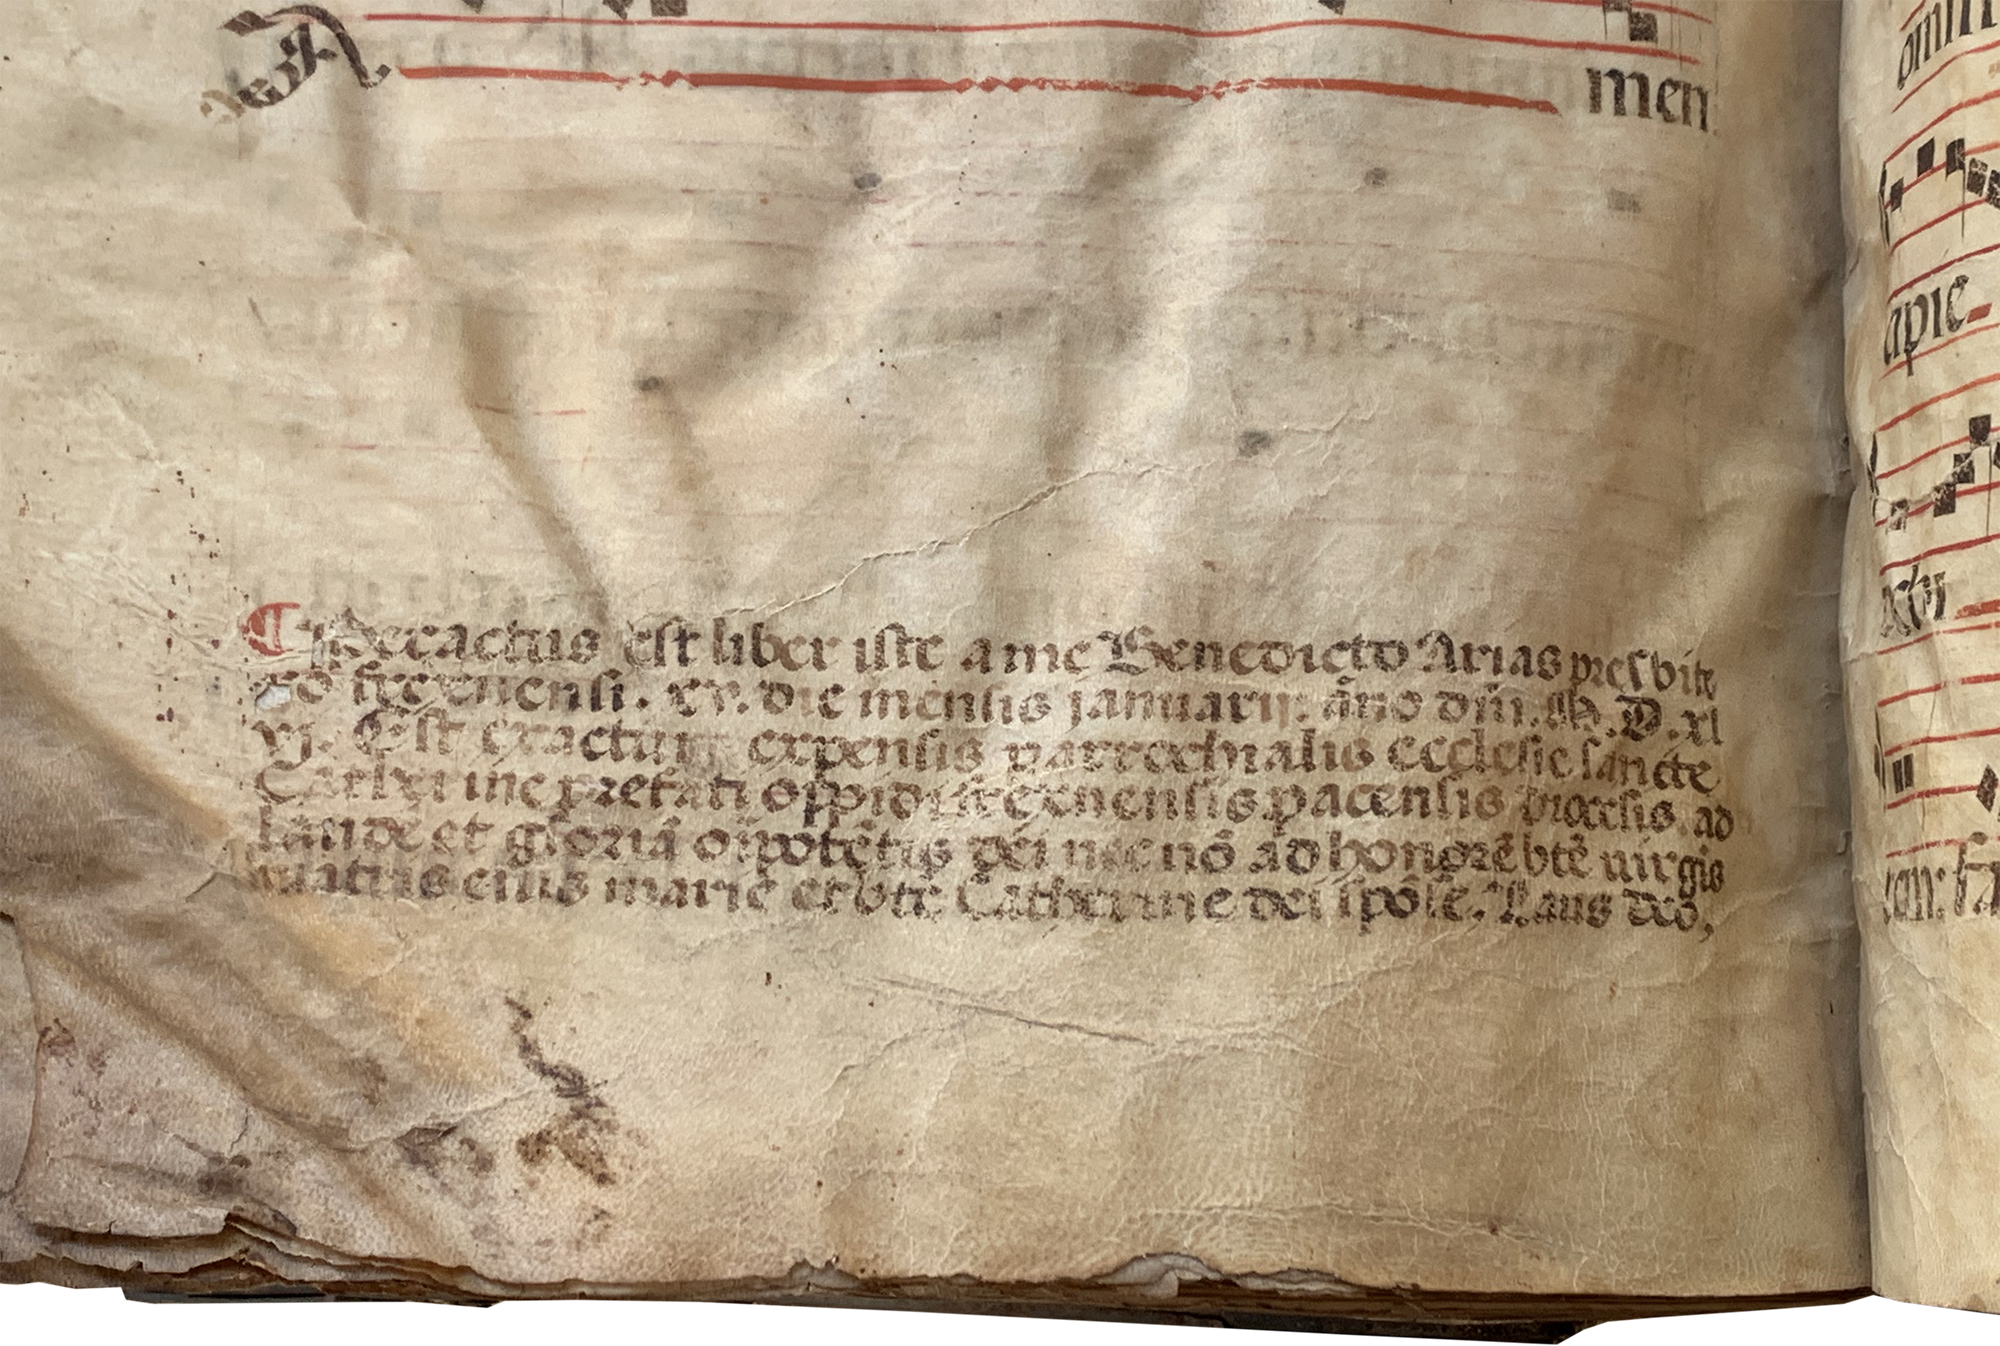 Amen
men
¶ Peractus est liber iste a me Benedicto Arias presbite
ro frexnensi. xv. die mensis januarij. año dñi. M. D. xl
vj. Est exactum expensis parrochialis ecclesie sancte
Catherine prefati oppidi frexnensis pacensis diocesis. ad
laudẽ et gloriã oĩpotẽtis dei nec nõ ad honorẽ btẽ uirgĩs
matris eius marie et bte Catherine dei spõse. Laus deo,
omni
apie
can: Fa